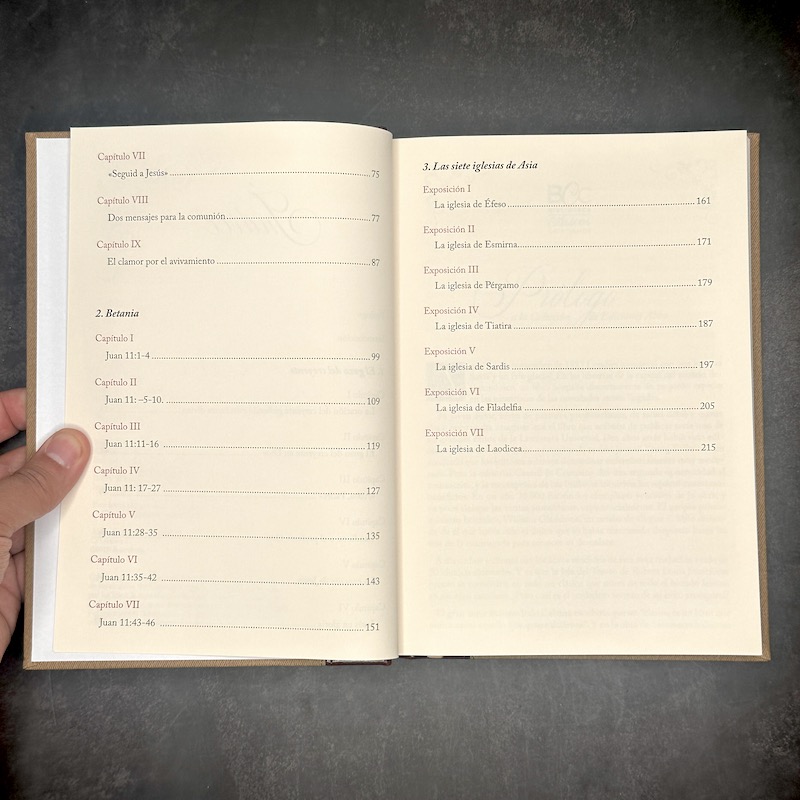 Capítulo VII
«Seguid a Jesús» 75
Capítulo VIII
Dos mensajes para la comunión 77
Capítulo IX
El clamor por el avivamiento 87
2. Betania
Capítulo I
Juan 11:1-4 99
Capítulo II
Juan 11: –5-10. 109
Capítulo III
Juan 11:11-16 119
Capítulo IV
Juan 11: 17-27 127
Capítulo V
Juan 11:28-35 135
Capítulo VI
Juan 11:35-42 143
Capítulo VII
Juan 11:43-46 151
3. Las siete iglesias de Asia
Exposición I
La iglesia de Éfeso 161
Exposición II
La iglesia de Esmirna 171
Exposición III
La iglesia de Pérgamo 179
Exposición IV
La iglesia de Tiatira 187
Exposición V
La iglesia de Sardis 197
Exposición VI
La iglesia de Filadelfia 205
Exposición VII
La iglesia de Laodicea 215